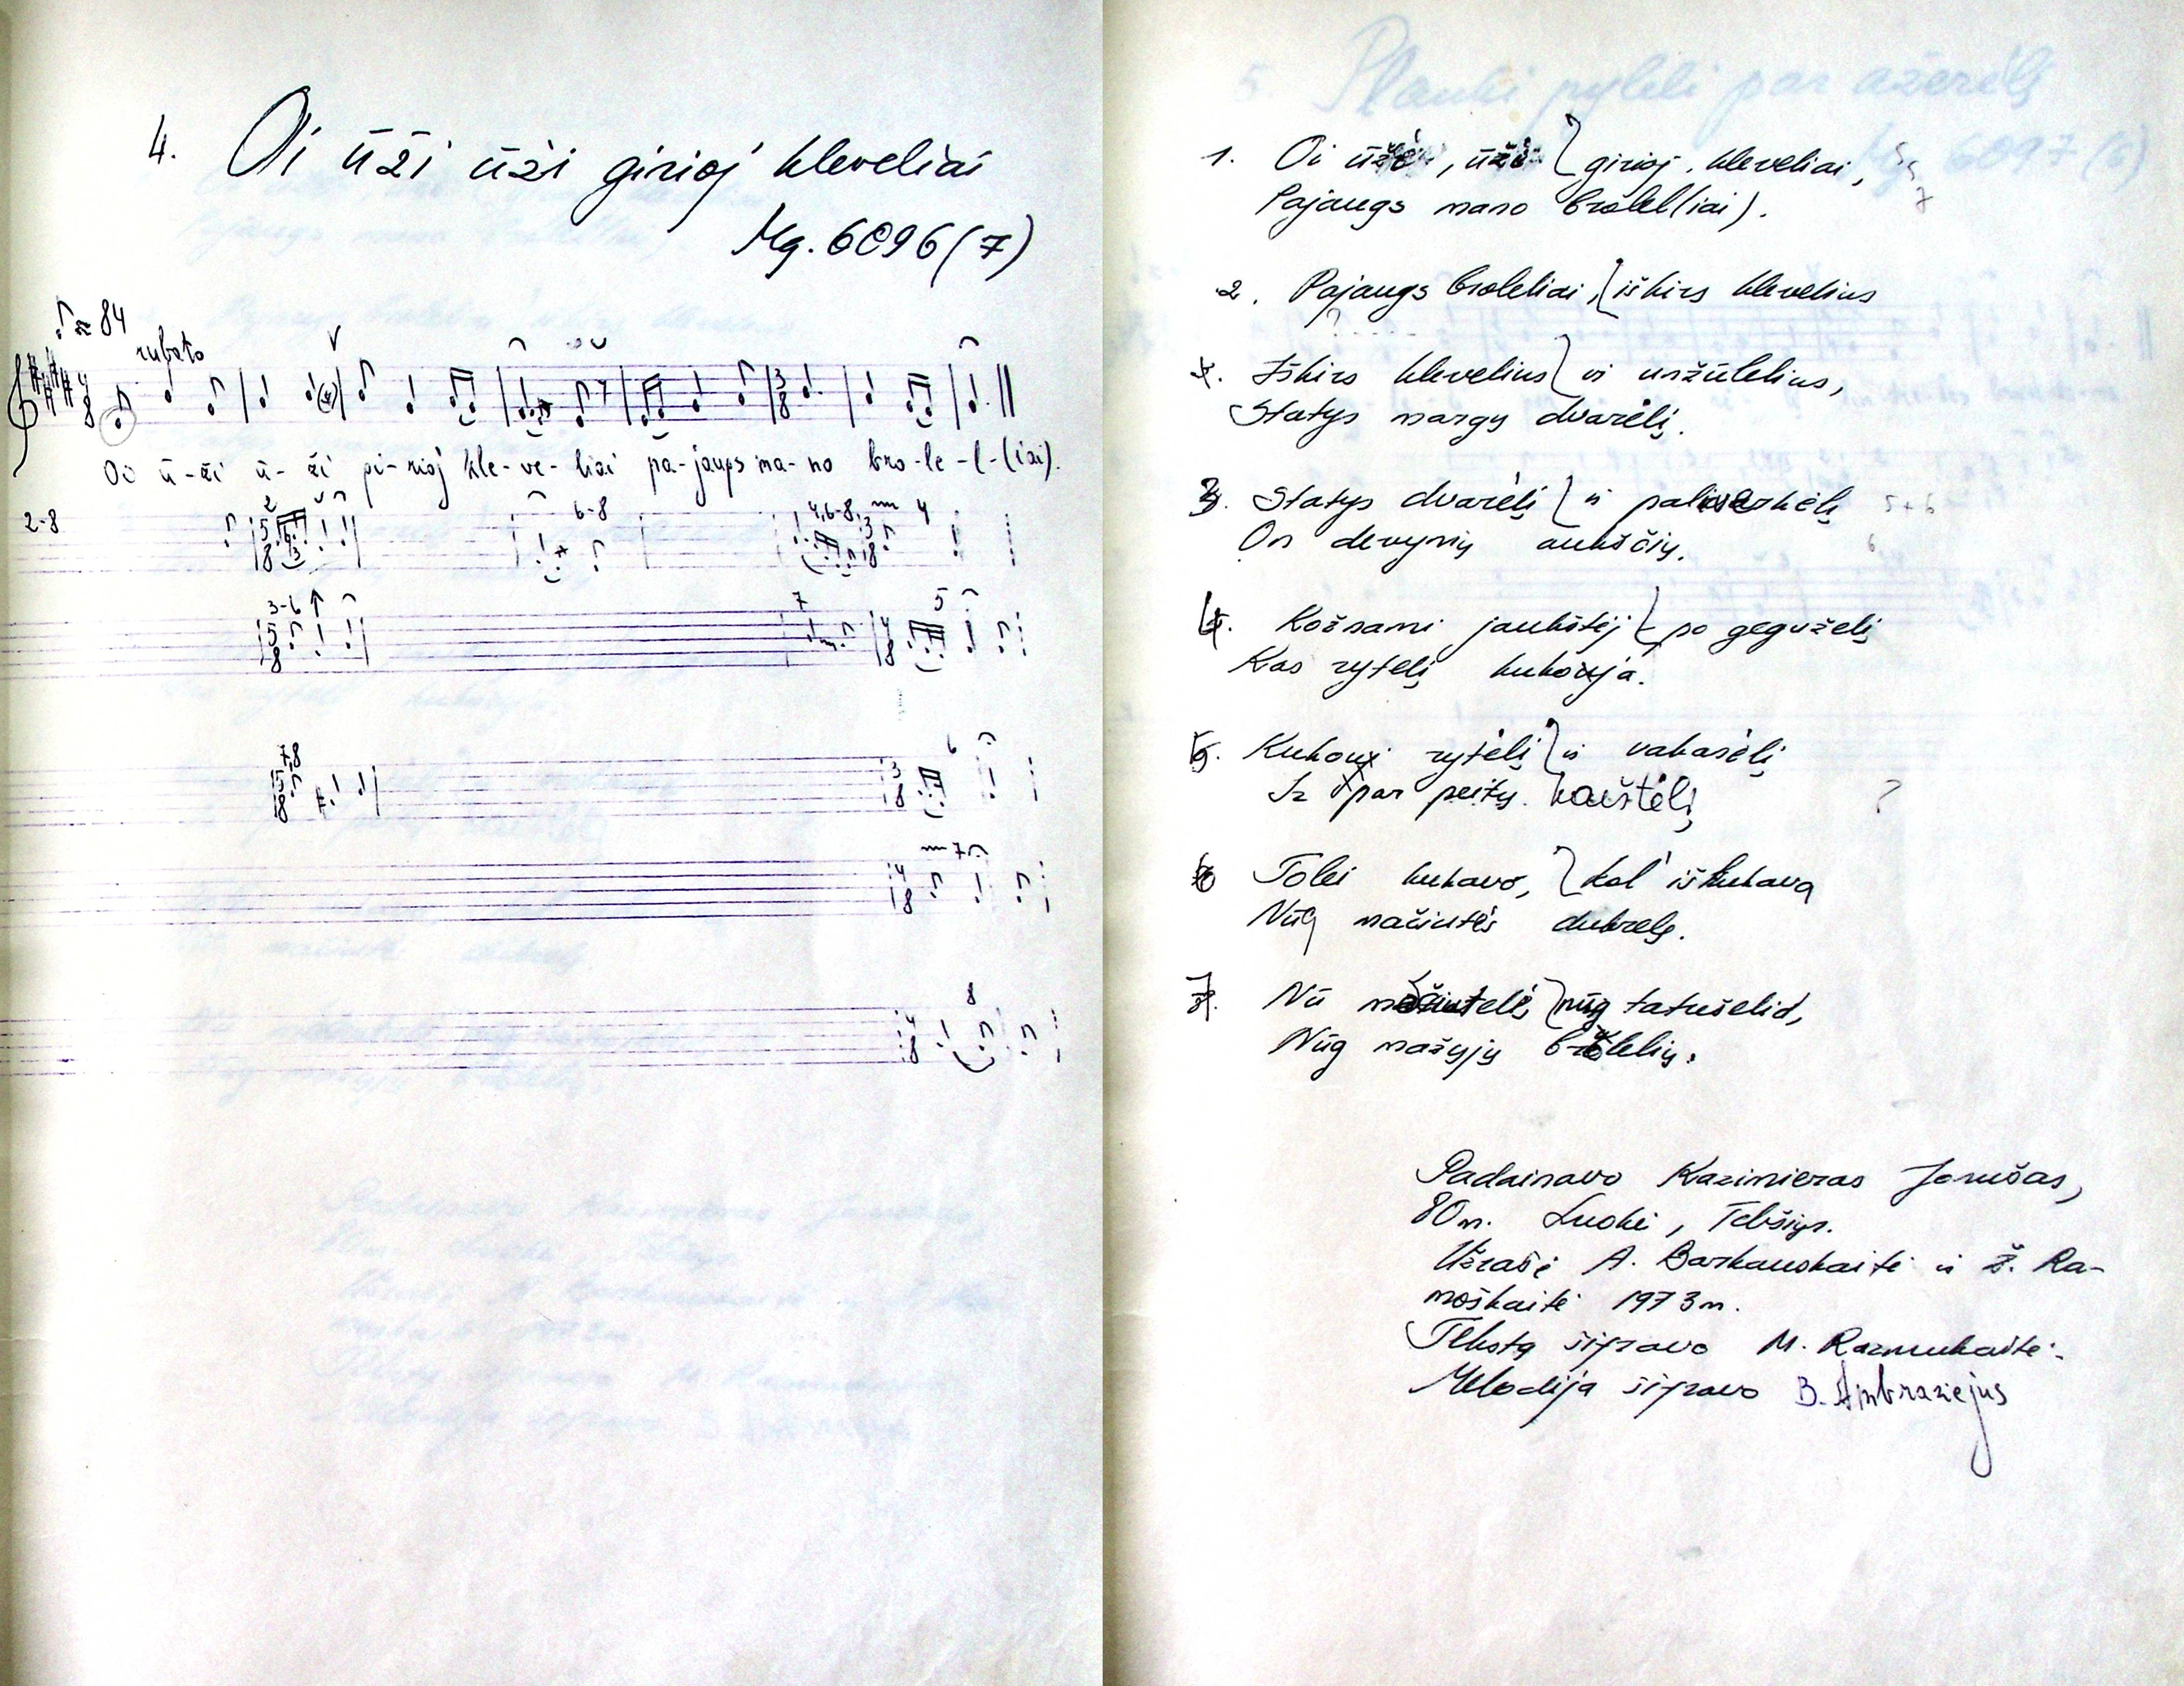 4. Oi ūži ūži girioj kleveliai
Mg. 6096 (7)
♪ ≈ 84
rubato
Oi ū-ži ū-ži gi-rioj kle-ve-liai pa-jaugs ma-no bro-le-l-(iai).
2-8
2
6-8
4,6-8,
4
3-6
7
5
7,8
6
7
8
1. Oi ūži, ūži girioj kleveliai,
Pajaugs mano brolel(iai).
2. Pajaugs broleliai, iškirs klevelius
Iškirs klevelius ir unžūlelius,
Statys margų dvarėlį.
3. Statys dvarėlį ir
On devynių aukščių.
4. Kožnami jaukštėj po gegužėlį
Kas rytelį kukouja.
5. Kukoui rytėlį ir vakarėlį
Iz par peitų kaištėlį
?
6 Tolei kukavo, kol' iškukava
Nūg mačiutės dukrelę.
7. Nū močiutelė, nūg tatušelid,
Nūg mažyjų brolelių.
Padainavo Kazimieras Jonušas,
80 m. Luokė, Telšiųr.
Užrašė A. Barkauskaitė ir Ž. Ra-
moškaitė 1973 m.
Tekstą šifravo M. Razmukaitė.
Melodija šifravo B. Ambraziejus